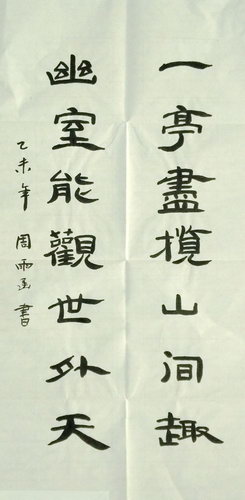 一亭盡攬山间趣
幽室能觀世外天
乙未年 周雨 書